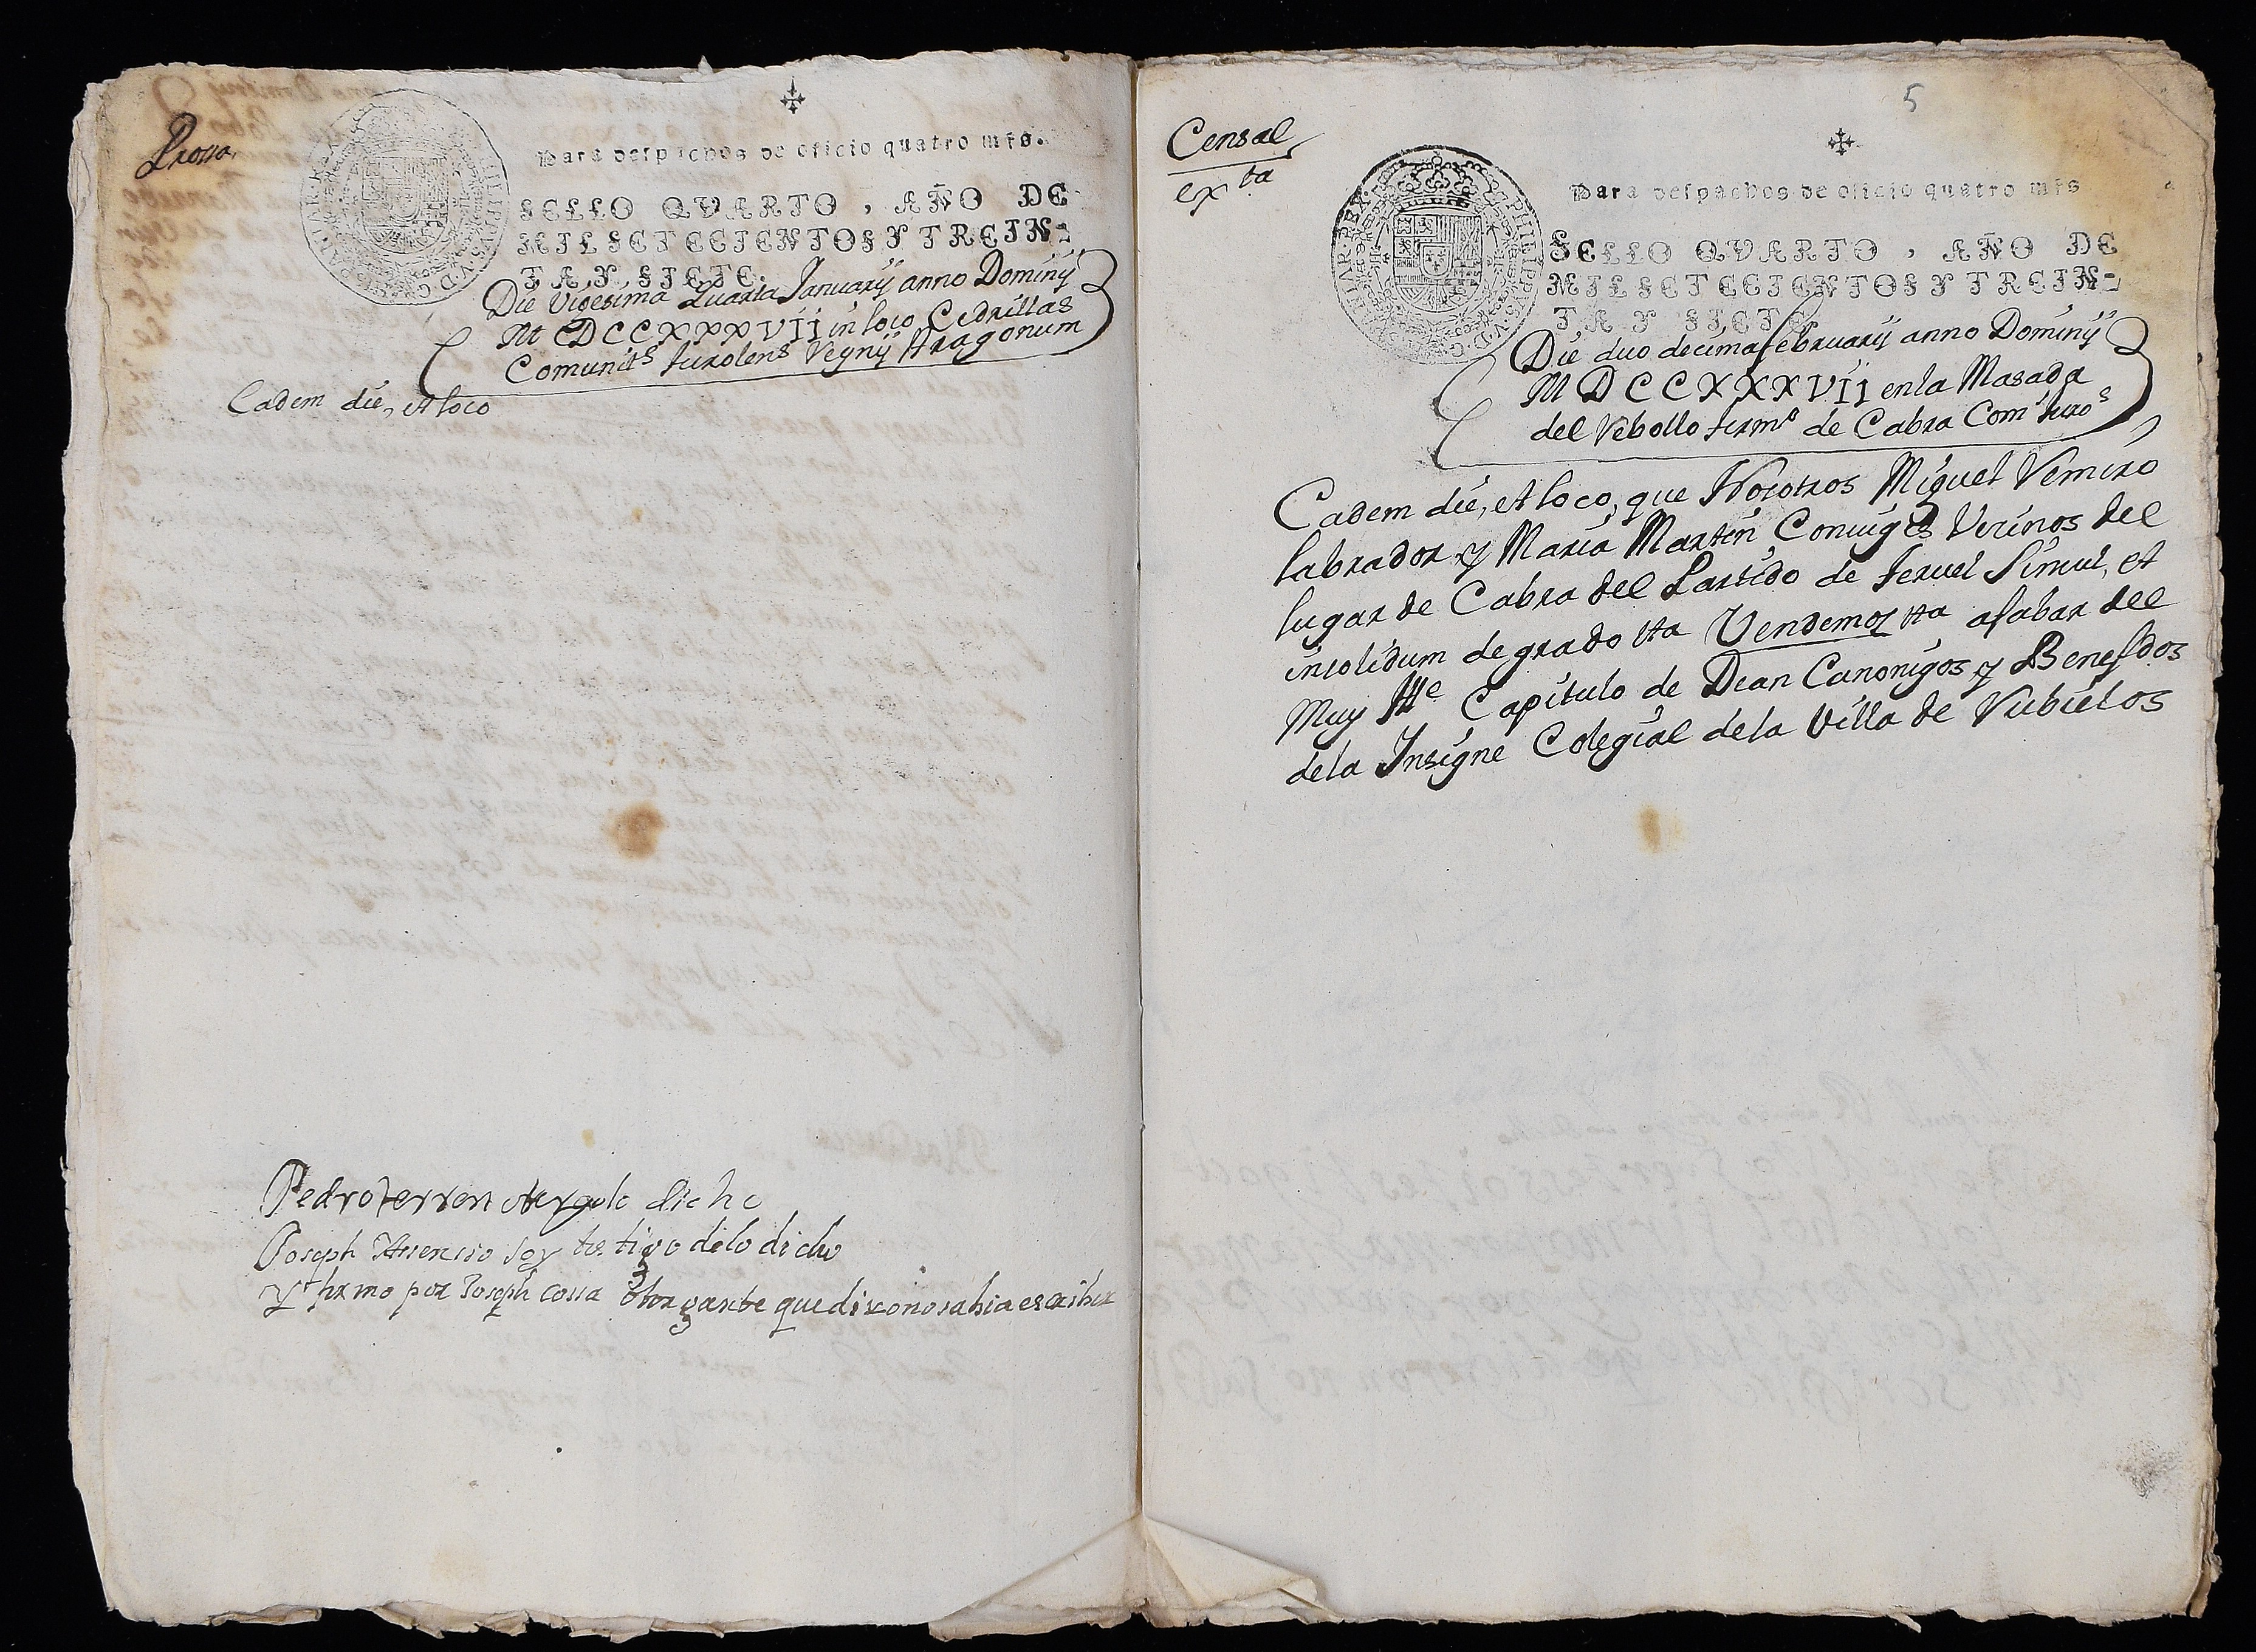 Para despachos de oficio quatro mrs.
SELLO QVARTO, AÑO DE
MIL SETECIENTOS Y TREIN=
TA, Y, SIETE.
Die Vigesima Quarta Januarij anno Dominij
M DCCXXXVII in loco Cedrillas
Comunits Turolens Regnij Aragonum
Eadem die, et loco
Pedro dicho
Joseph Assensio soy testigo delo dicho
Y firmo por Joseph otorgante que dixo no sabia escribir
5
Censal
exta
Para despachos de oficio quatro mrs
SELLO QVARTO, AÑO DE
MIL SETECIENTOS Y TREIN=
TA Y SIETE
PHILIPPVS V D G
HISPANIAR REX
Die duo decima februarij anno Dominij
M DCCXXXVII en la Masada
del Rebollo termo de Cabra Comt Turos
Eadem die, et loco, que Nosotros Miguel Remiro
labrador y Maria Martin Coniuges Vecinos del
lugar de Cabra del Partido de Teruel Simul, et
insolidum de grado tta Vendemos tta afabar del
Muy Ille Capitulo de Dean Canonigos y Benefdos
dela Insigne Colegial dela Villa de Rubielos